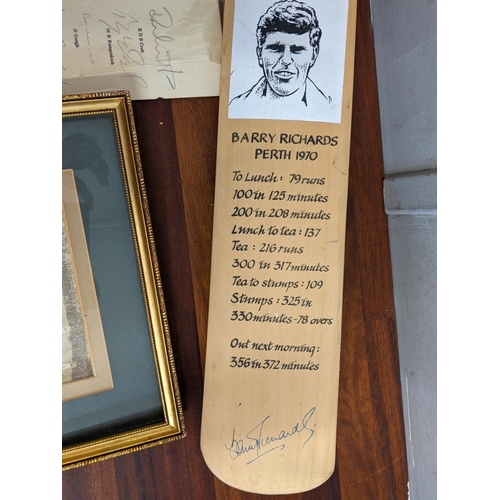 R D B Croft
M R Ramprakash
D Gough
BARRY RICHARDS
PERTH 1970
To Lunch: 79 runs
100 in 125 minutes
200 in 208 minutes
Lunch to tea: 137
Tea: 216 runs
300 in 317 minutes
Tea to stumps: 109
Stumps: 325 in
330 minutes - 78 overs
Out next morning:
356 in 372 minutes
Barry Richards